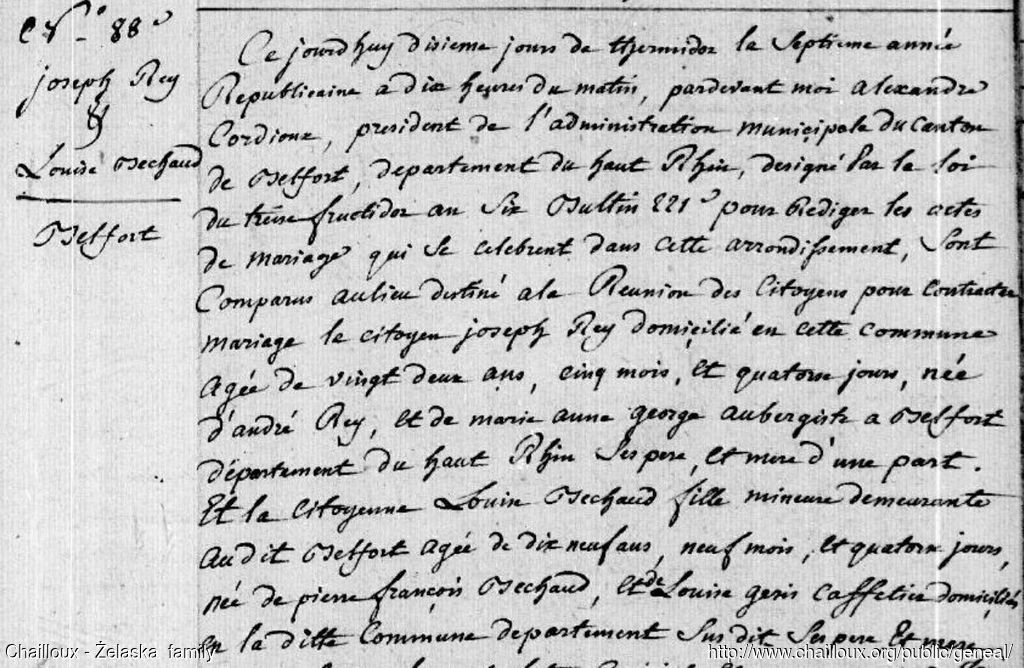 N.° 88.e
joseph Rey
&
Louise Bechaud
Belfort
Ce jourdhuy disieme jours de thermidor la Septieme année
Republicaine a dix heures du matin, pardevant moi alexandre
Cordioux, president de l'administration municipale du Canton
de Belfort, departement du haut Rhin, designé Par la loi
du treise fructidor an Six Bultin 221e pour Rediger les actes
de mariage qui Se celebrent dans cette arrondissement, Sont
Comparus au lieu destiné a la Reunion des Citoyens pour Contracter
mariage le citoyen joseph Rey domicilié en cette commune
agée de vingt deux ans, cinq mois, et quatorse jours, née
d'andré Rey, et de marie anne george aubergiste a Belfort
département du haut Rhin Ses pere, et mere d'une part.
Et la Citoyenne Louise Bechaud fille mineure demeurante
audit Belfort agée de dix neuf ans, neuf mois, et quatorse jours,
née de pierre françois Bechaud, et de Louise Caffetier domiciliés
en la ditte Commune departement Sus dit Ses pere Et mere
Chailloux - Żelaska family
http://www.chailloux.org/public/geneal/